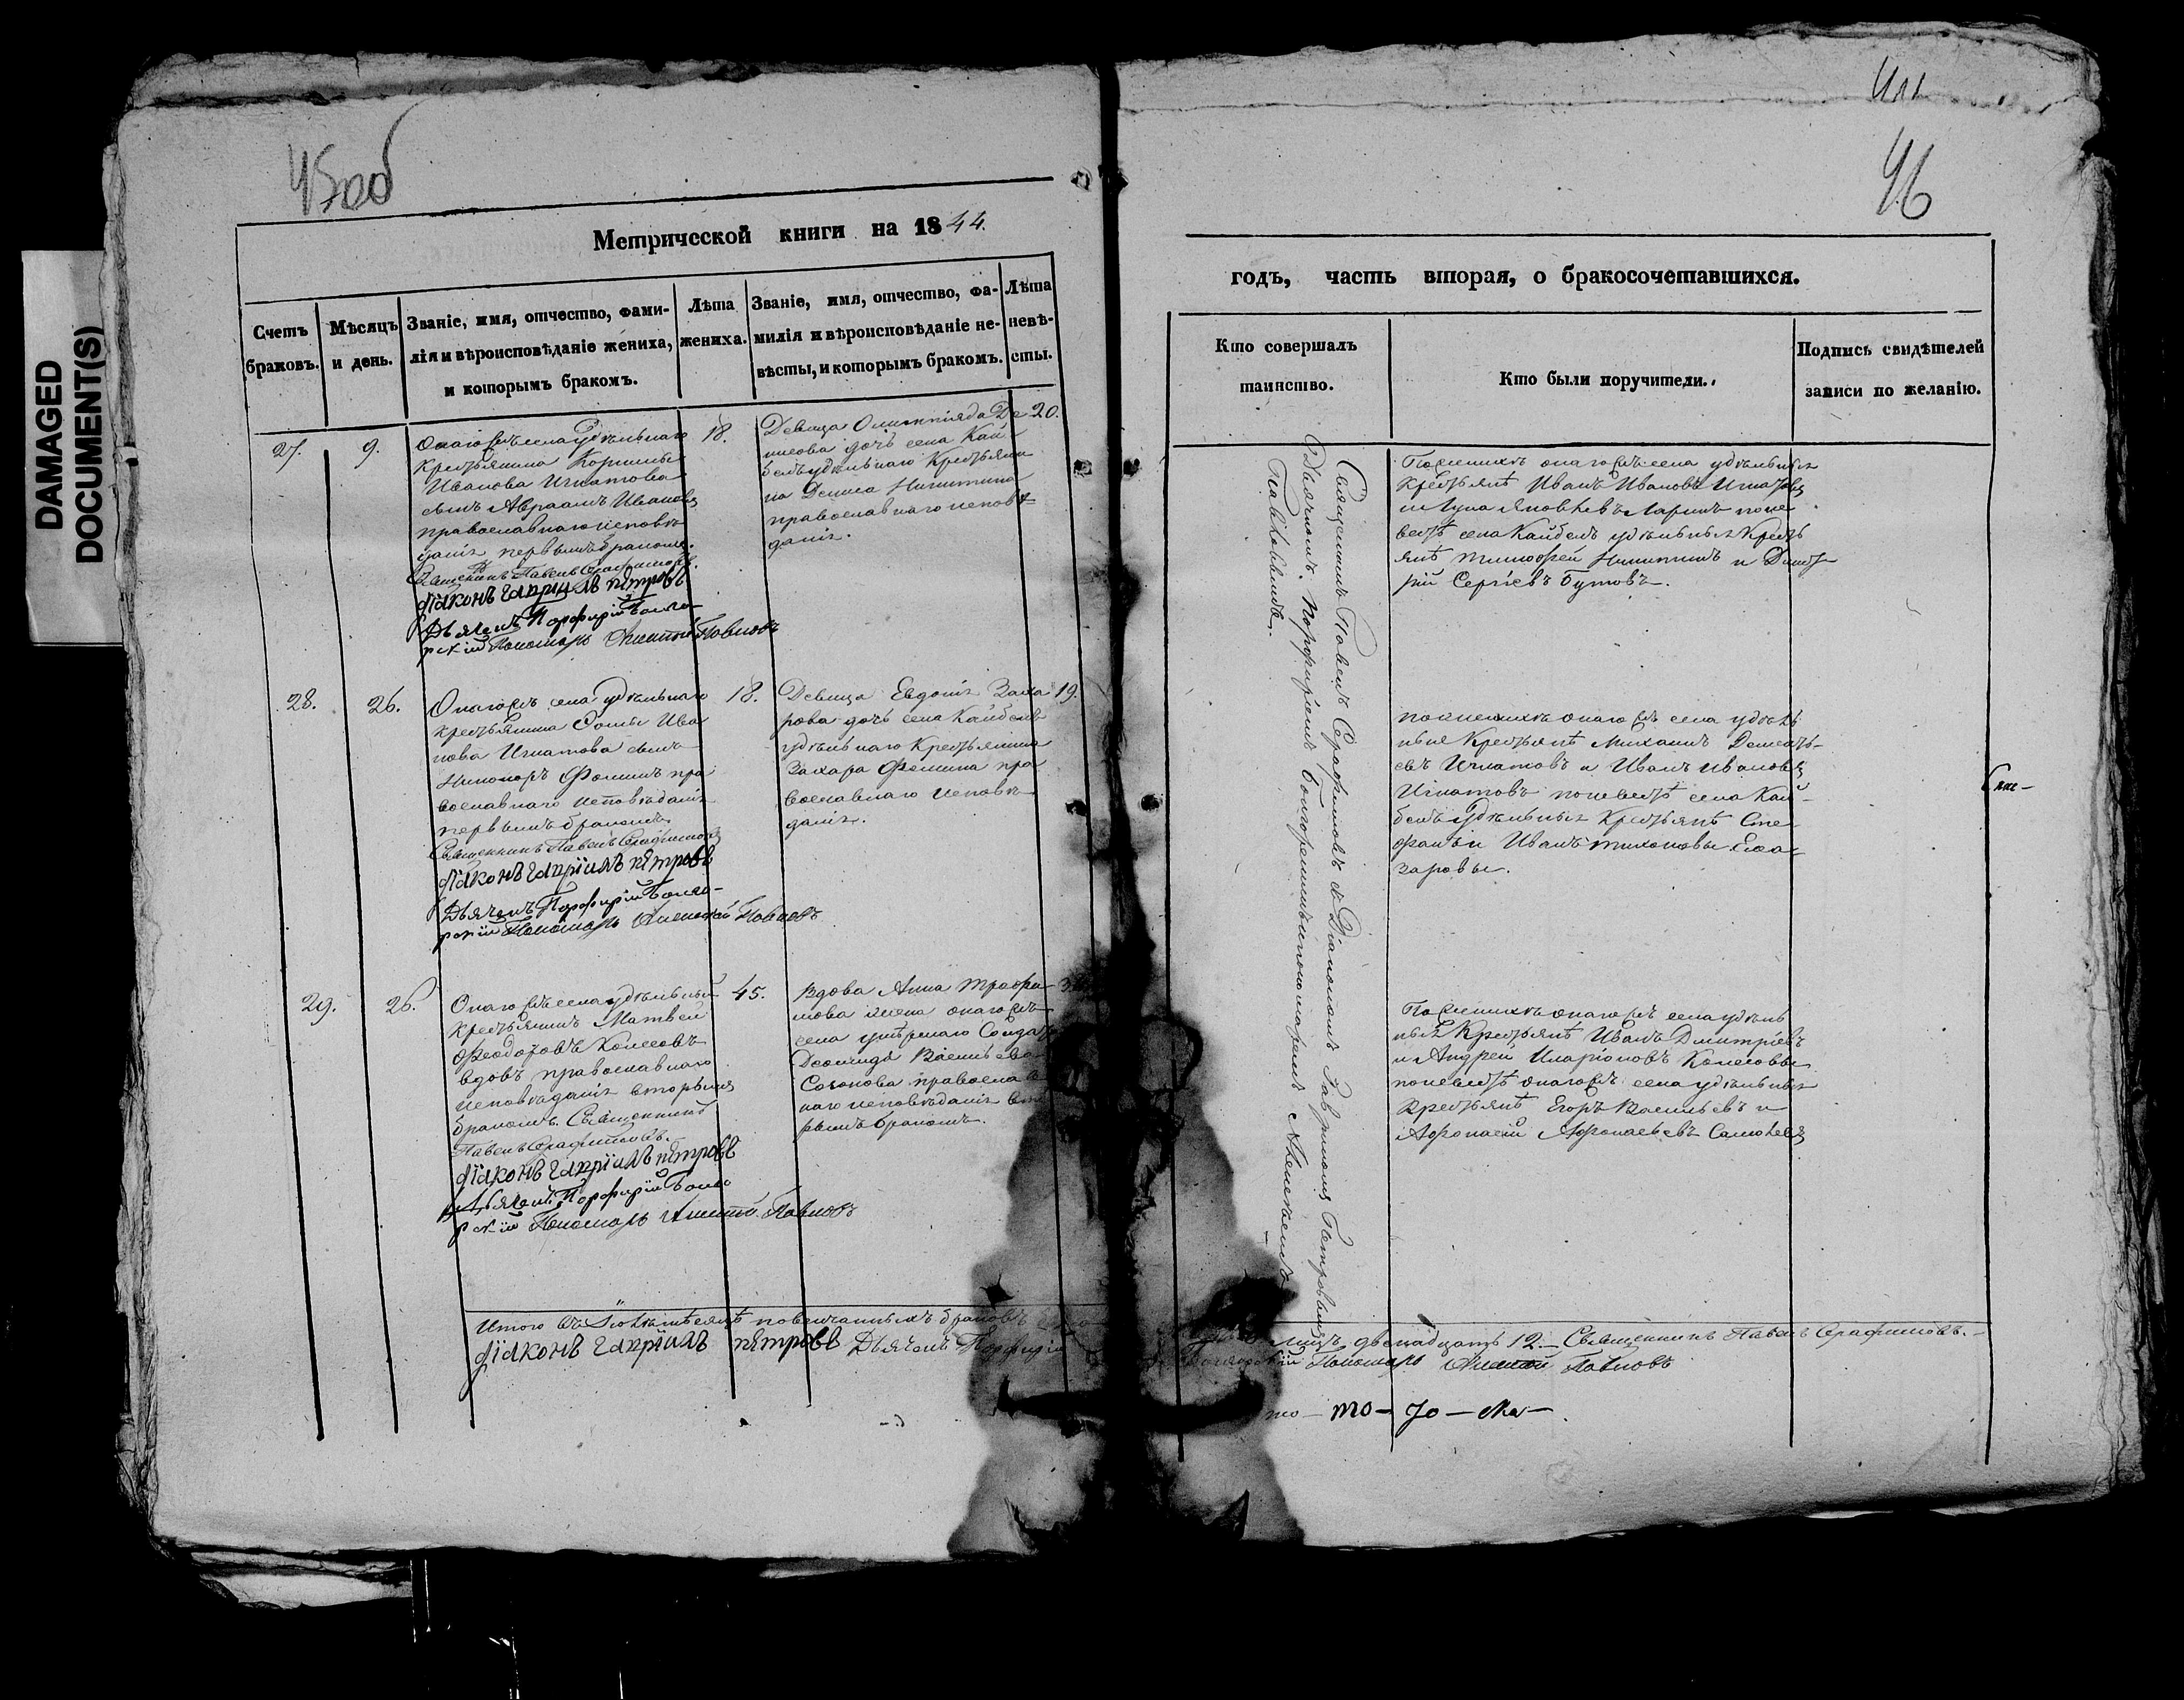 DAMAGED
DOCUMENT(S)
45 об
Метрической книги на 1844.
Счетъ
браковъ.
Мѣсяцъ
и день.
Званіе, имя, отчество, фами-
лія и вѣроисповѣданіе жениха,
и которымъ бракомъ.
Лѣта
жениха.
Званіе, имя, отчество, фа-
милія и вѣроисповѣданіе не-
вѣсты, и которымъ бракомъ.
Лѣта
невѣ-
сты.
27.
9.
села удѣльнаго
крестьянина
Иванова Игнатова
сынъ Авраамъ Ивановъ
православнаго исповѣ
данія первымъ бракомъ.
Священникъ Павелъ Серафимовъ.
Діаконъ Гавріилъ Петровъ
Дьячекъ Порфирій Болго-
рскій Пономарь Алексѣй Павловъ
18.
Девица Олимпіяда Де
нисова дочь села Кай
белъ удѣльнаго Крестьяни
на Дениса Никитина
православнаго исповѣ
данія.
20.
28.
26.
села удѣльнаго
крестьянина Фомы Ива
нова Игнатова сынъ
Никоноръ Фоминъ пра
вославнаго исповѣданія
первымъ бракомъ.
Священникъ Павелъ Серафимовъ
Діаконъ Гавріилъ Петровъ
Дьячекъ Порфирій Болго-
рскій Пономарь Алексѣй Павловъ
18.
Девица Евдокія Заха
рова дочь села Кайбелъ
удѣльнаго Крестьянина
Захара Фомина пра
вославнаго исповѣ
данія.
19.
29.
26.
села удѣльный
крестьянинъ Матвей
Феодоровъ Колесовъ
вдовъ православнаго
исповѣданія вторымъ
бракомъ. Священникъ
Павелъ Серафимовъ.
Діаконъ Гавріилъ Петровъ
Дьячекъ Порфирій Болго
рскій Пономарь Алексѣй Павловъ
45.
Вдова Анна Трофи
мова жена
села умѣршаго Солдата
Васильева
православ
наго исповѣданія вто
рымъ бракомъ.
Итого въ мѣсяцѣ повенчанныхъ браковъ
Діаконъ Гавріилъ Петровъ Дьячекъ Порфирій
46
годъ, часть вторая, о бракосочетавшихся.
Кто совершалъ
таинство.
Кто были поручители.
Подпись свидѣтелей
записи по желанію.
Священникъ Павелъ Серафимовъ съ Діакономъ Гавріиломъ Петровымъ
Дьячкомъ Порфиріемъ Болгорскимъ и пономаремъ Алексѣемъ
Павловымъ.
По женихѣ села удѣльныя
Крестьянѣ Иванъ Ивановъ Игнатовъ
и Лука Яковлевъ Ларинъ поне
вестѣ села Кайбелъ удѣльныя Кресть
янѣ Тимофей Никитинъ и Дмит
рій Сергѣевъ Бутовъ.
по женихѣ села удѣль
ныя Крестьянѣ Михаилъ
Игнатовъ и Иванъ Ивановъ
Игнатовъ поневестѣ села Кай-
белъ Удѣльныя Крестьянѣ Сте
фанъ и Иванъ Тихоновы Еле
заровы.
По женихѣ села удѣль
ныя Крестьянѣ Иванъ Дмитріевъ
и Андрей Иларіоновъ Колесовы
поневестѣ села удѣльныя
Крестьянѣ Егоръ Васильевъ и
Афонасій Афонасьевъ
двенадцать 12. Священникъ Павелъ Серафимовъ.
Болгорскій Пономарь Алексѣй Павловъ